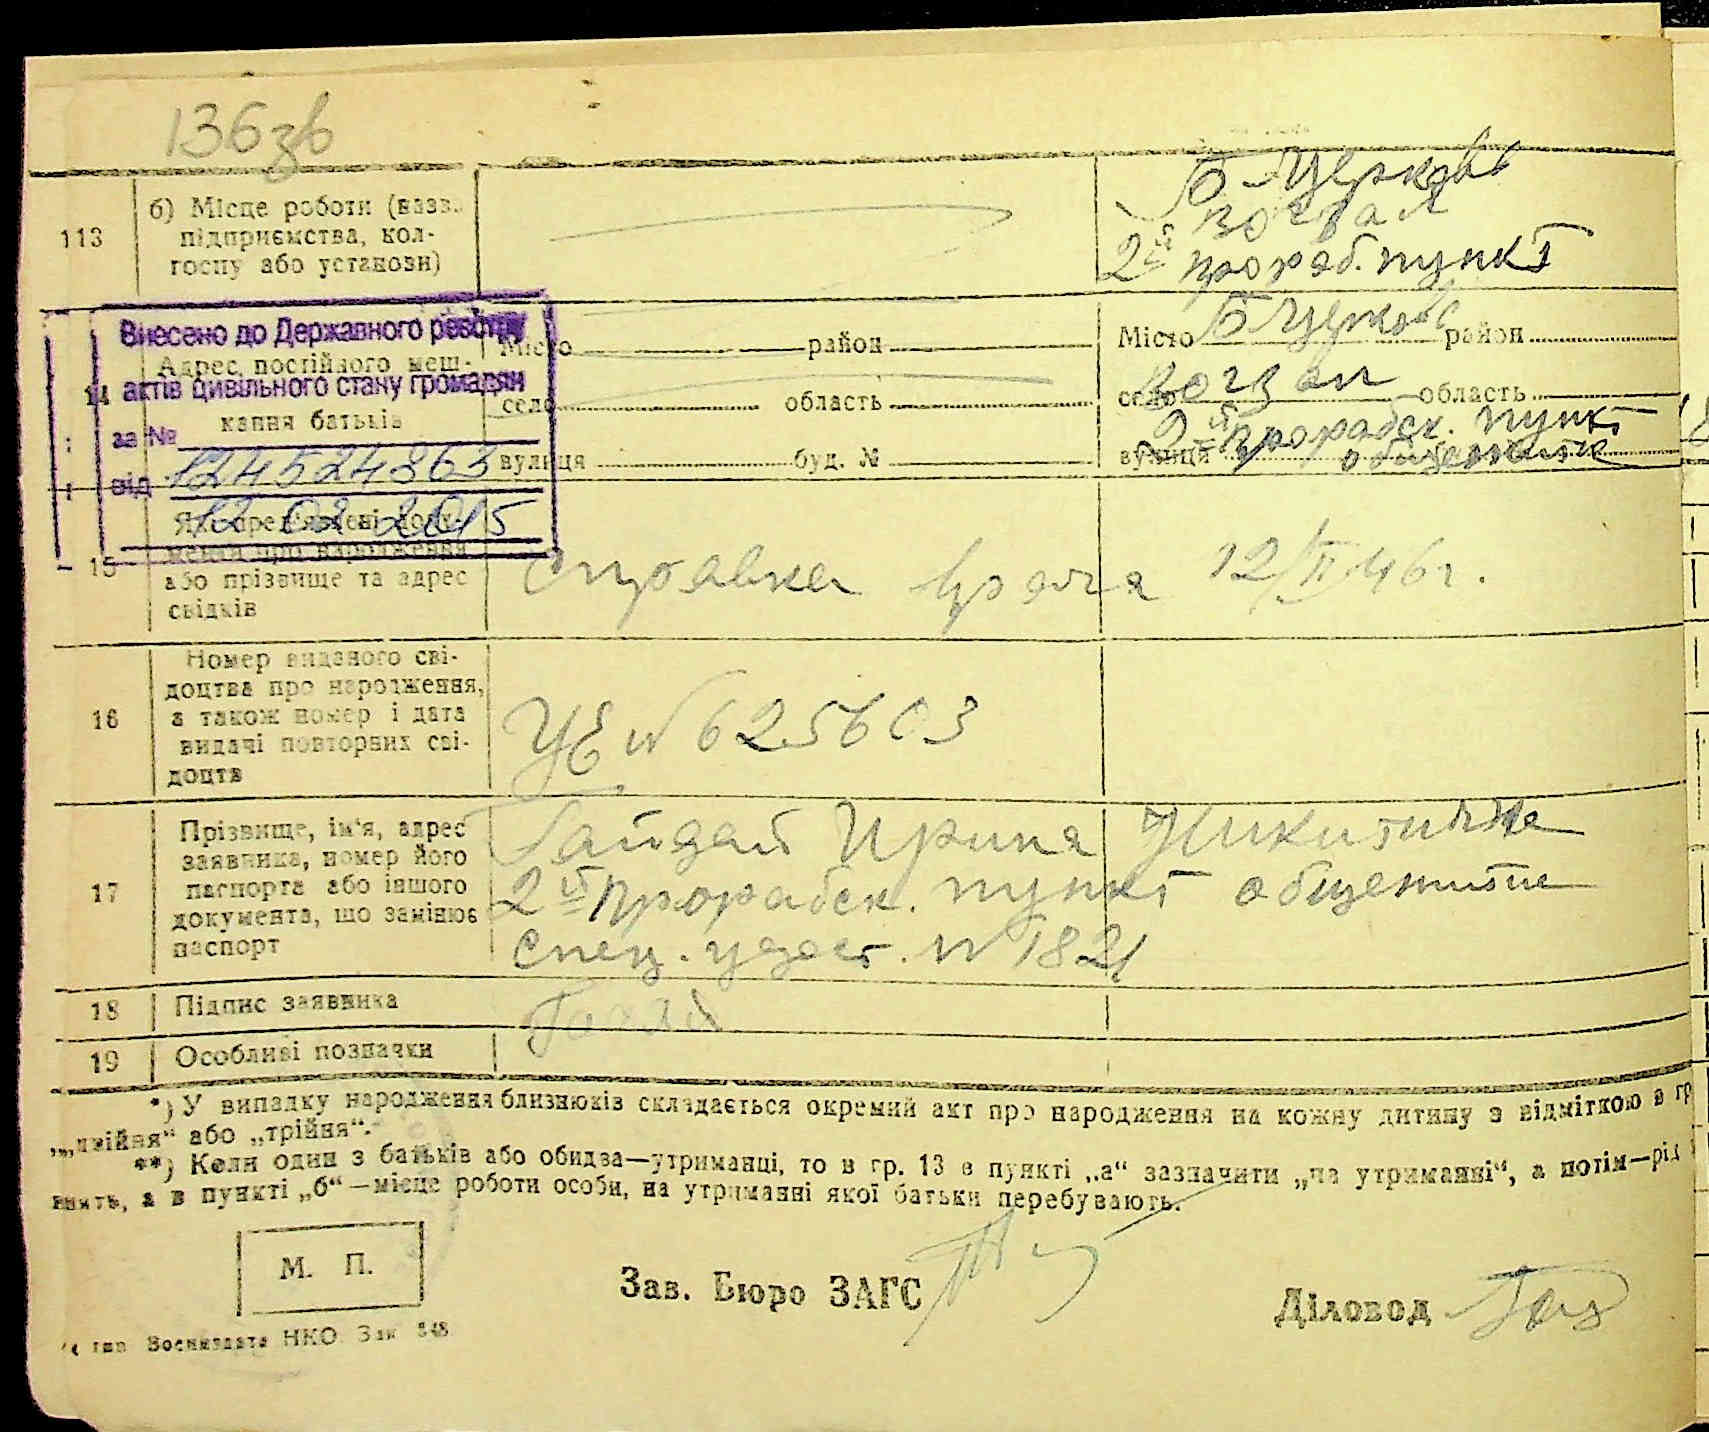 136зв
113
б) Місце роботи (назв.
підприємства, кол-
госпу або установи)
Б-Церковь
вокзал
2й прораб. пункт
Внесено до Державного реєстру
актів цивільного стану громадян
за № 124524363
від 12 02 2015
14
Адрес постійного меш-
кання батьків
Місто район
село область
вулиця буд. №
Місто Б Церковь район
село вокзал область
2й прорабск. пункт
вулиця общежитие
15
Які пред'явлені доку-
менти про народження
або прізвище та адрес
свідків
Справка врача 12/II 46 г.
16
Номер виданого сві-
доцтва про народження,
а також номер і дата
видачі повторних сві-
доцтв
УЕ № 625603
17
Прізвище, ім'я, адрес
заявника, номер його
паспорта або іншого
документа, що замінює
паспорт
Гайдай Ирина Никитична
2й прорабск. пункт общежитие
спец. удост. № 1821
18
Підпис заявника
19
Особливі позначки
*) У випадку народження близнюків складається окремий акт про народження на кожну дитину з відміткою в гр
„двійня“ або „трійня“.
**) Коли один з батьків або обидва—утриманці, то в гр. 13 в пункті „а“ зазначити „на утриманні“, а потім—рід
занять, а в пункті „б“—місце роботи особи, на утриманні якої батьки перебувають.
М. П.
Зав. Бюро ЗАГС
Діловод
тип Воениздата НКО Зак 848